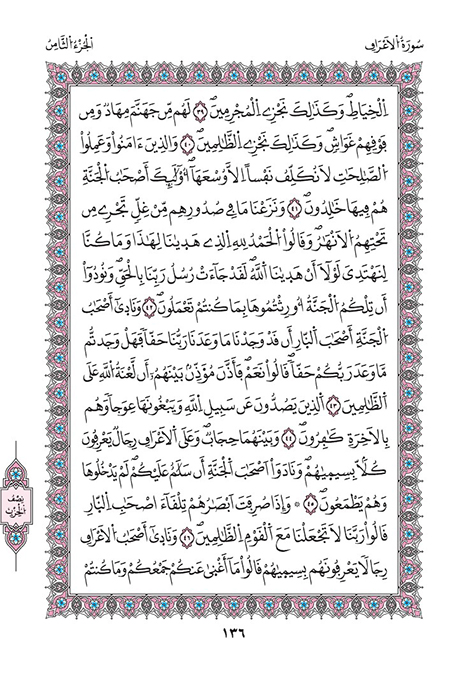 سُورَةُ الْأَعْرَافِ
الْجُزْءُ الثَّامِنُ
اِلْخِيَاطِۖ وَكَذَٰلِكَ نَجْزِے اِلْمُجْرِمِينَۖ ٣٩ لَهُم مِّن جَهَنَّمَ مِهَادٞ وَمِن
فَوْقِهِمْ غَوَاشٖۖ وَكَذَٰلِكَ نَجْزِے اِلظَّٰلِمِينَۖ ٤٠ وَالذِينَ ءَامَنُواْ وَعَمِلُواْ
اُلصَّٰلِحَٰتِ لَا نُكَلِّفُ نَفْساً اِلَّا وُسْعَهَآ أُوْلَٰٓئِكَ أَصْحَٰبُ الْجَنَّةِ
هُمْ فِيهَا خَٰلِدُونَۖ ٤١ وَنَزَعْنَا مَا فِے صُدُورِهِم مِّنْ غِلّٖ تَجْرِے مِن
تَحْتِهِمُ اُلَانْهَٰرُۖ وَقَالُواْ اُلْحَمْدُ لِلهِ اِلذِے هَدَىٰنَا لِهَٰذَا وَمَا كُنَّا
لِنَهْتَدِيَ لَوْلَآ أَنْ هَدَىٰنَا اَللَّهُۖ لَقَدْ جَآءَتْ رُسُلُ رَبِّنَا بِالْحَقِّۖ وَنُودُوٓاْ
أَن تِلْكُمُ الْجَنَّةُ أُورِثْتُمُوهَا بِمَا كُنتُمْ تَعْمَلُونَۖ ٤٢ وَنَادَىٰٓ أَصْحَٰبُ
اُلْجَنَّةِ أَصْحَٰبَ اَلنَّارِ أَن قَدْ وَجَدْنَا مَا وَعَدَنَا رَبُّنَا حَقّاٗ فَهَلْ وَجَدتُّم
مَّا وَعَدَ رَبُّكُمْ حَقّاٗۖ قَالُواْ نَعَمْۖ فَأَذَّنَ مُؤَذِّنُۢ بَيْنَهُمُۥٓ أَن لَّعْنَةُ اُللَّهِ عَلَى
اَلظَّٰلِمِينَ ٤٣ اَلذِينَ يَصُدُّونَ عَن سَبِيلِ اِللَّهِ وَيَبْغُونَهَا عِوَجاٗ وَهُم
بِالَاخِرَةِ كَٰفِرُونَۖ ٤٤ وَبَيْنَهُمَا حِجَابٞۖ وَعَلَى اَلَاعْرَافِ رِجَالٞ يَعْرِفُونَ
كُلّاَۢ بِسِيمَىٰهُمْۖ وَنَادَوَاْ اَصْحَٰبَ اَلْجَنَّةِ أَن سَلَٰمٌ عَلَيْكُمْۖ لَمْ يَدْخُلُوهَا
وَهُمْ يَطْمَعُونَۖ ٤٥ ۞ وَإِذَا صُرِفَتَ اَبْصَٰرُهُمْ تِلْقَآءَ اَصْحَٰبِ اِلنَّارِ
قَالُواْ رَبَّنَا لَا تَجْعَلْنَا مَعَ اَلْقَوْمِ اِلظَّٰلِمِينَۖ ٤٦ وَنَادَىٰٓ أَصْحَٰبُ الَاعْرَافِ
رِجَالاٗ يَعْرِفُونَهُم بِسِيمَىٰهُمْ قَالُواْ مَآ أَغْنَىٰ عَنكُمْ جَمْعُكُمْ وَمَا كُنتُمْ
نِصْف
الحِزْب
١٣٦